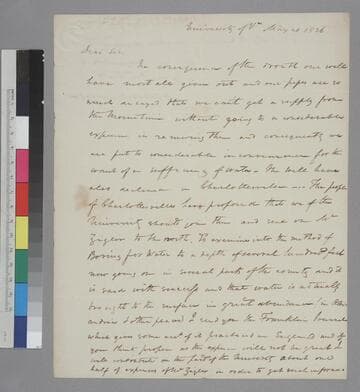 University of Va May 20 1826
Dear Sir
In consequence of the drouth our wells
have most all given out and our pipes are so
much decayed that we cant get a supply from
the Mountain without going to a considerable
expence in renewing them and consequently we
are put to considerable inconvenience for the
want of a sufficiency of Water. The wells have
also declined in Charlottesville. The people
of Charlottesville have proposed that we of the
University should join them and send on Mr
Zeigler to the north, To examine into the method of
Boring for Water to a depth of several hundred feet
now going on in several parts of the country and it
is said with success and that water is actually
brought to the surface in great abundance in
and other places I send you the Franklin Journal
which gives some acct of its practice in England and if
you think proper as the expence will not be great
will contribute on the part of the University about one
half of expences of Mr Zeigler in order to get such information